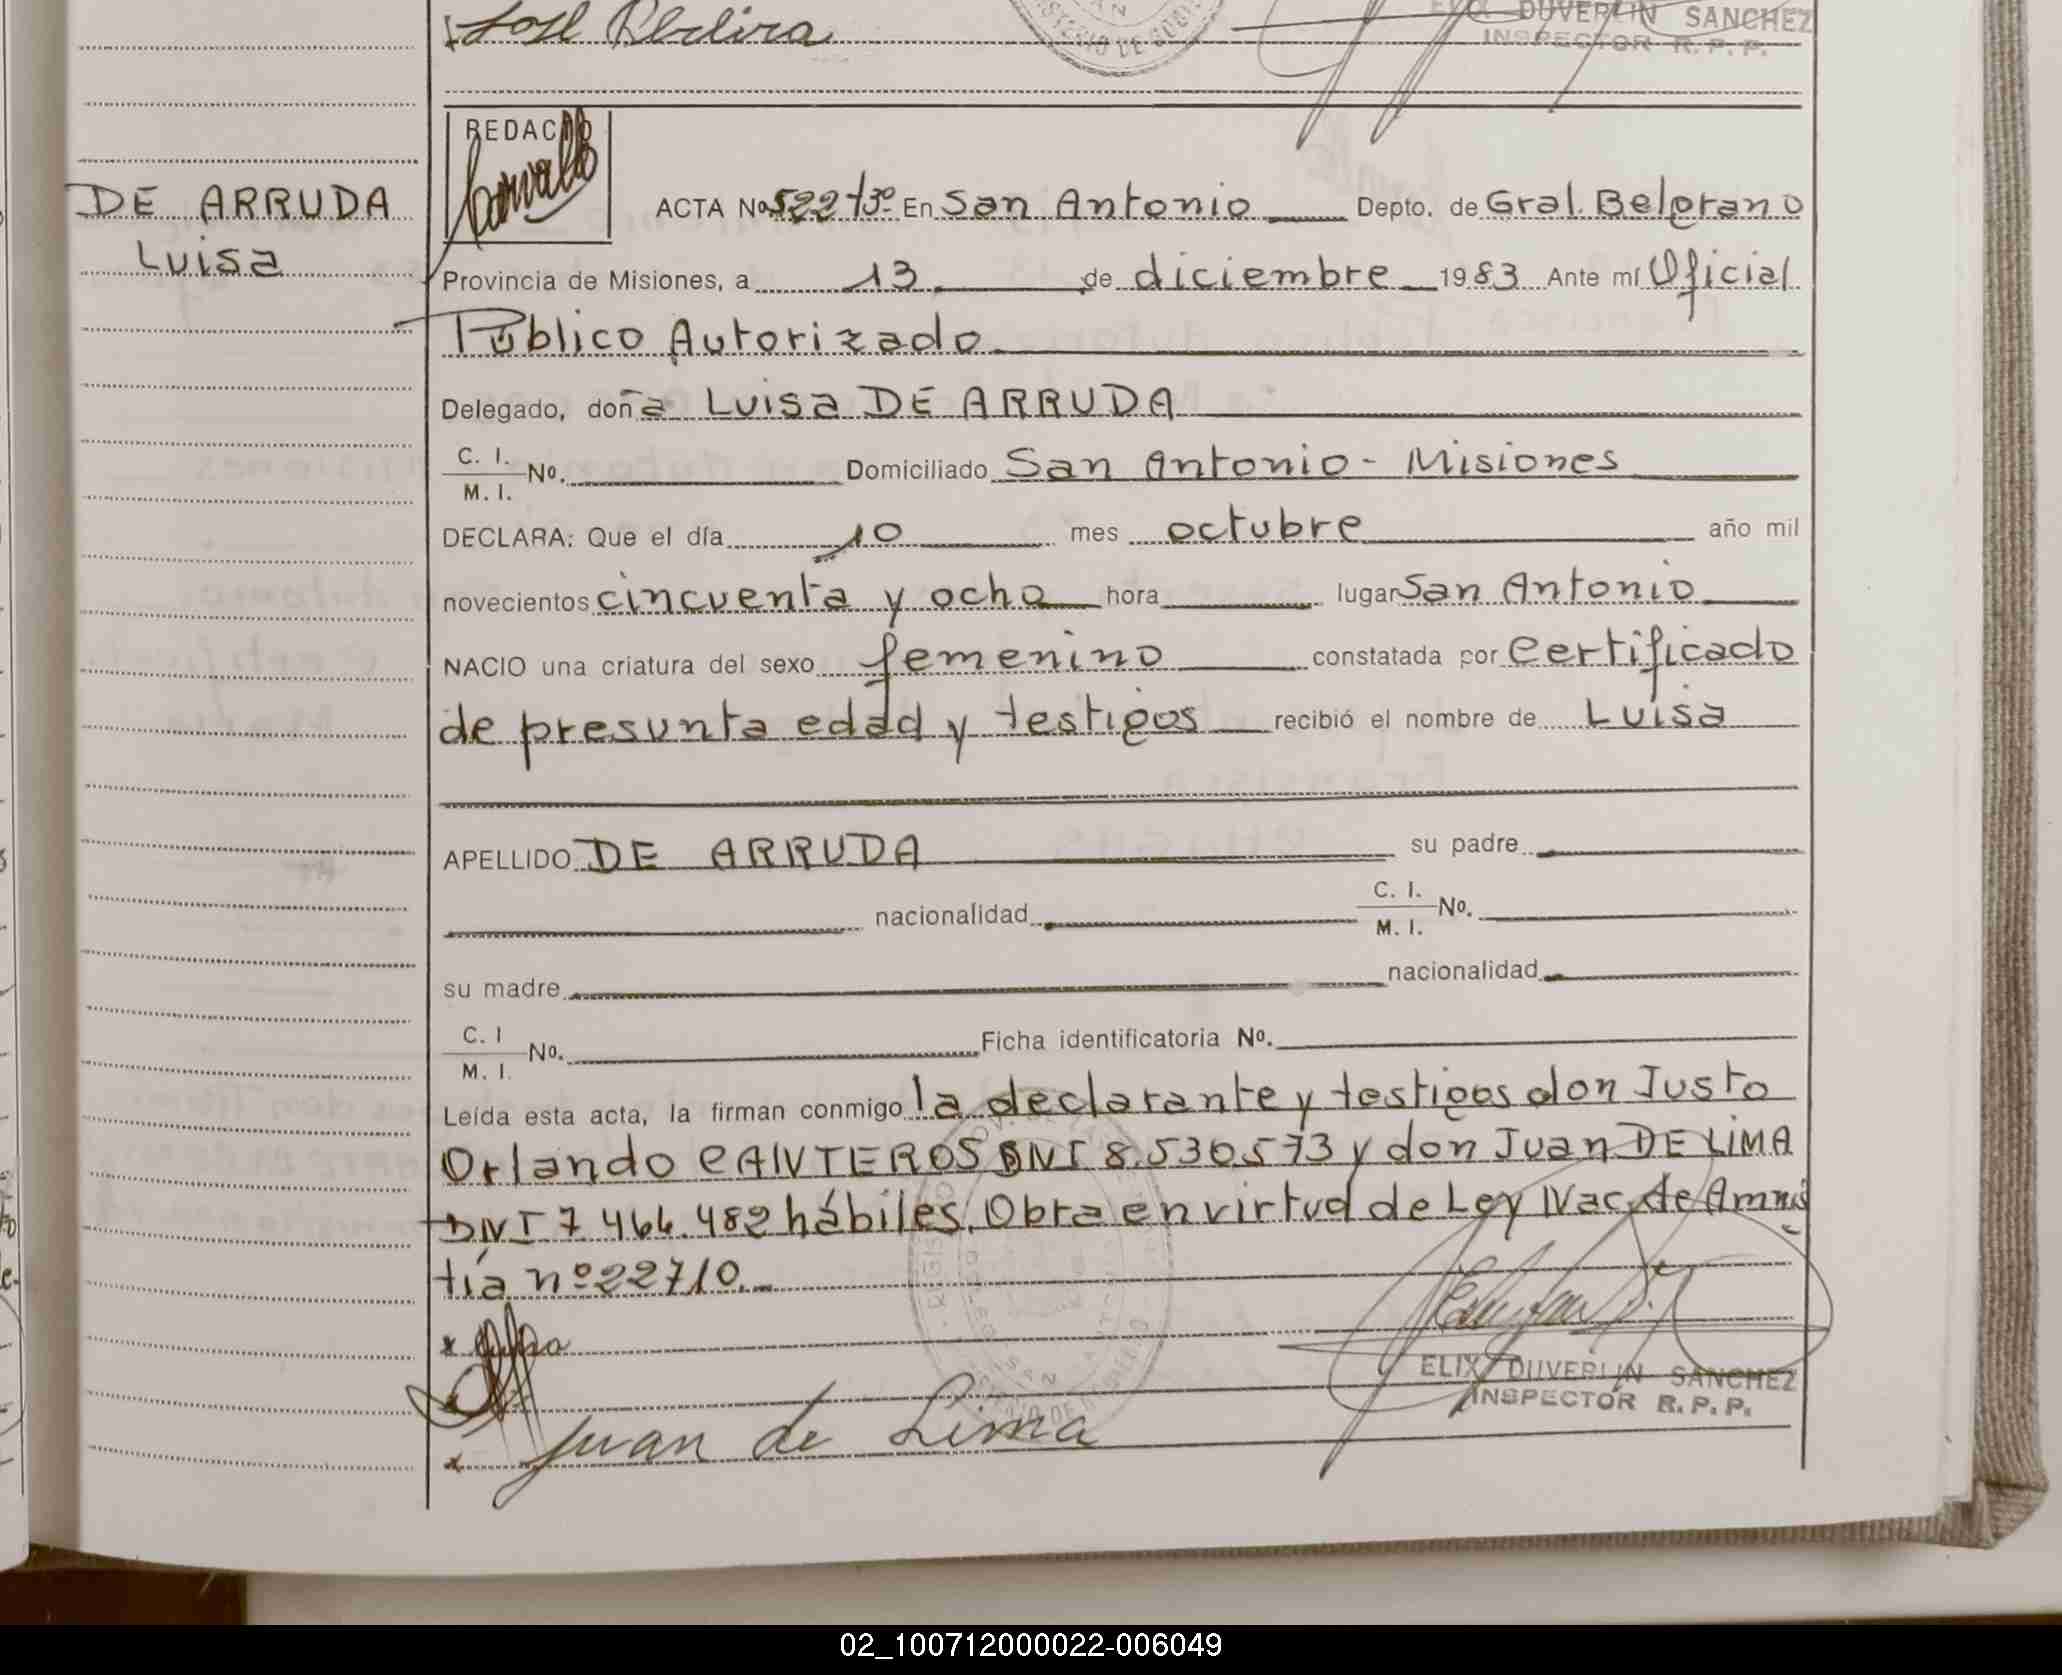 José
ELIX DUVERLIN SANCHEZ
INSPECTOR R. P. P.
DE ARRUDA
Luisa
REDACTÓ
ACTA Nº 522 Tº 3º En San Antonio Depto. de Gral. Belgrano
Provincia de Misiones, a 13 de diciembre 1983 Ante mí Oficial
Público Autorizado
Delegado, doña Luisa DE ARRUDA
C. I.
M. I. Nº. Domiciliado San Antonio - Misiones
DECLARA: Que el día 10 mes octubre año mil
novecientos cincuenta y ocho hora lugar San Antonio
NACIO una criatura del sexo femenino constatada por certificado
de presunta edad y testigos recibió el nombre de Luisa
APELLIDO DE ARRUDA su padre
nacionalidad C. I.
M. I. Nº.
su madre nacionalidad
C. I
M. I. Nº. Ficha identificatoria Nº.
Leída esta acta, la firman conmigo la declarante y testigos don Justo
Orlando CANTEROS DNI 8.530.573 y don Juan DE LIMA
DNI 7.464.482 hábiles. Obra en virtud de Ley Nac. de Amnis
tía nº 22710.-
Juan de Lima
ELIX DUVERLIN SANCHEZ
INSPECTOR R. P. P.
02_100712000022-006049